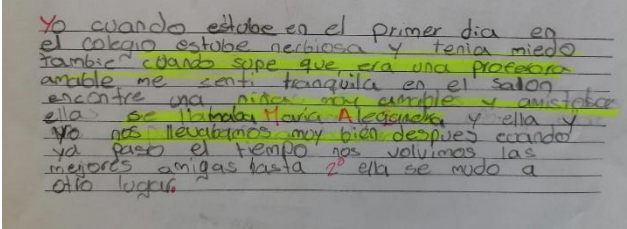 Yo cuando estube en el primer dia en
el colegio estube nerbiosa y tenia miedo
tambien cuando supe que era una profesora
amable me senti tranquila en el salon
encontre una niña muy amable y amistosa
ella se llamaba María Alegandra y ella y
Yo nos llevabamos muy bien despues cuando
ya paso el tiempo nos volvimos las
mejores amigas hasta 2º ella se mudo a
otro lugar.